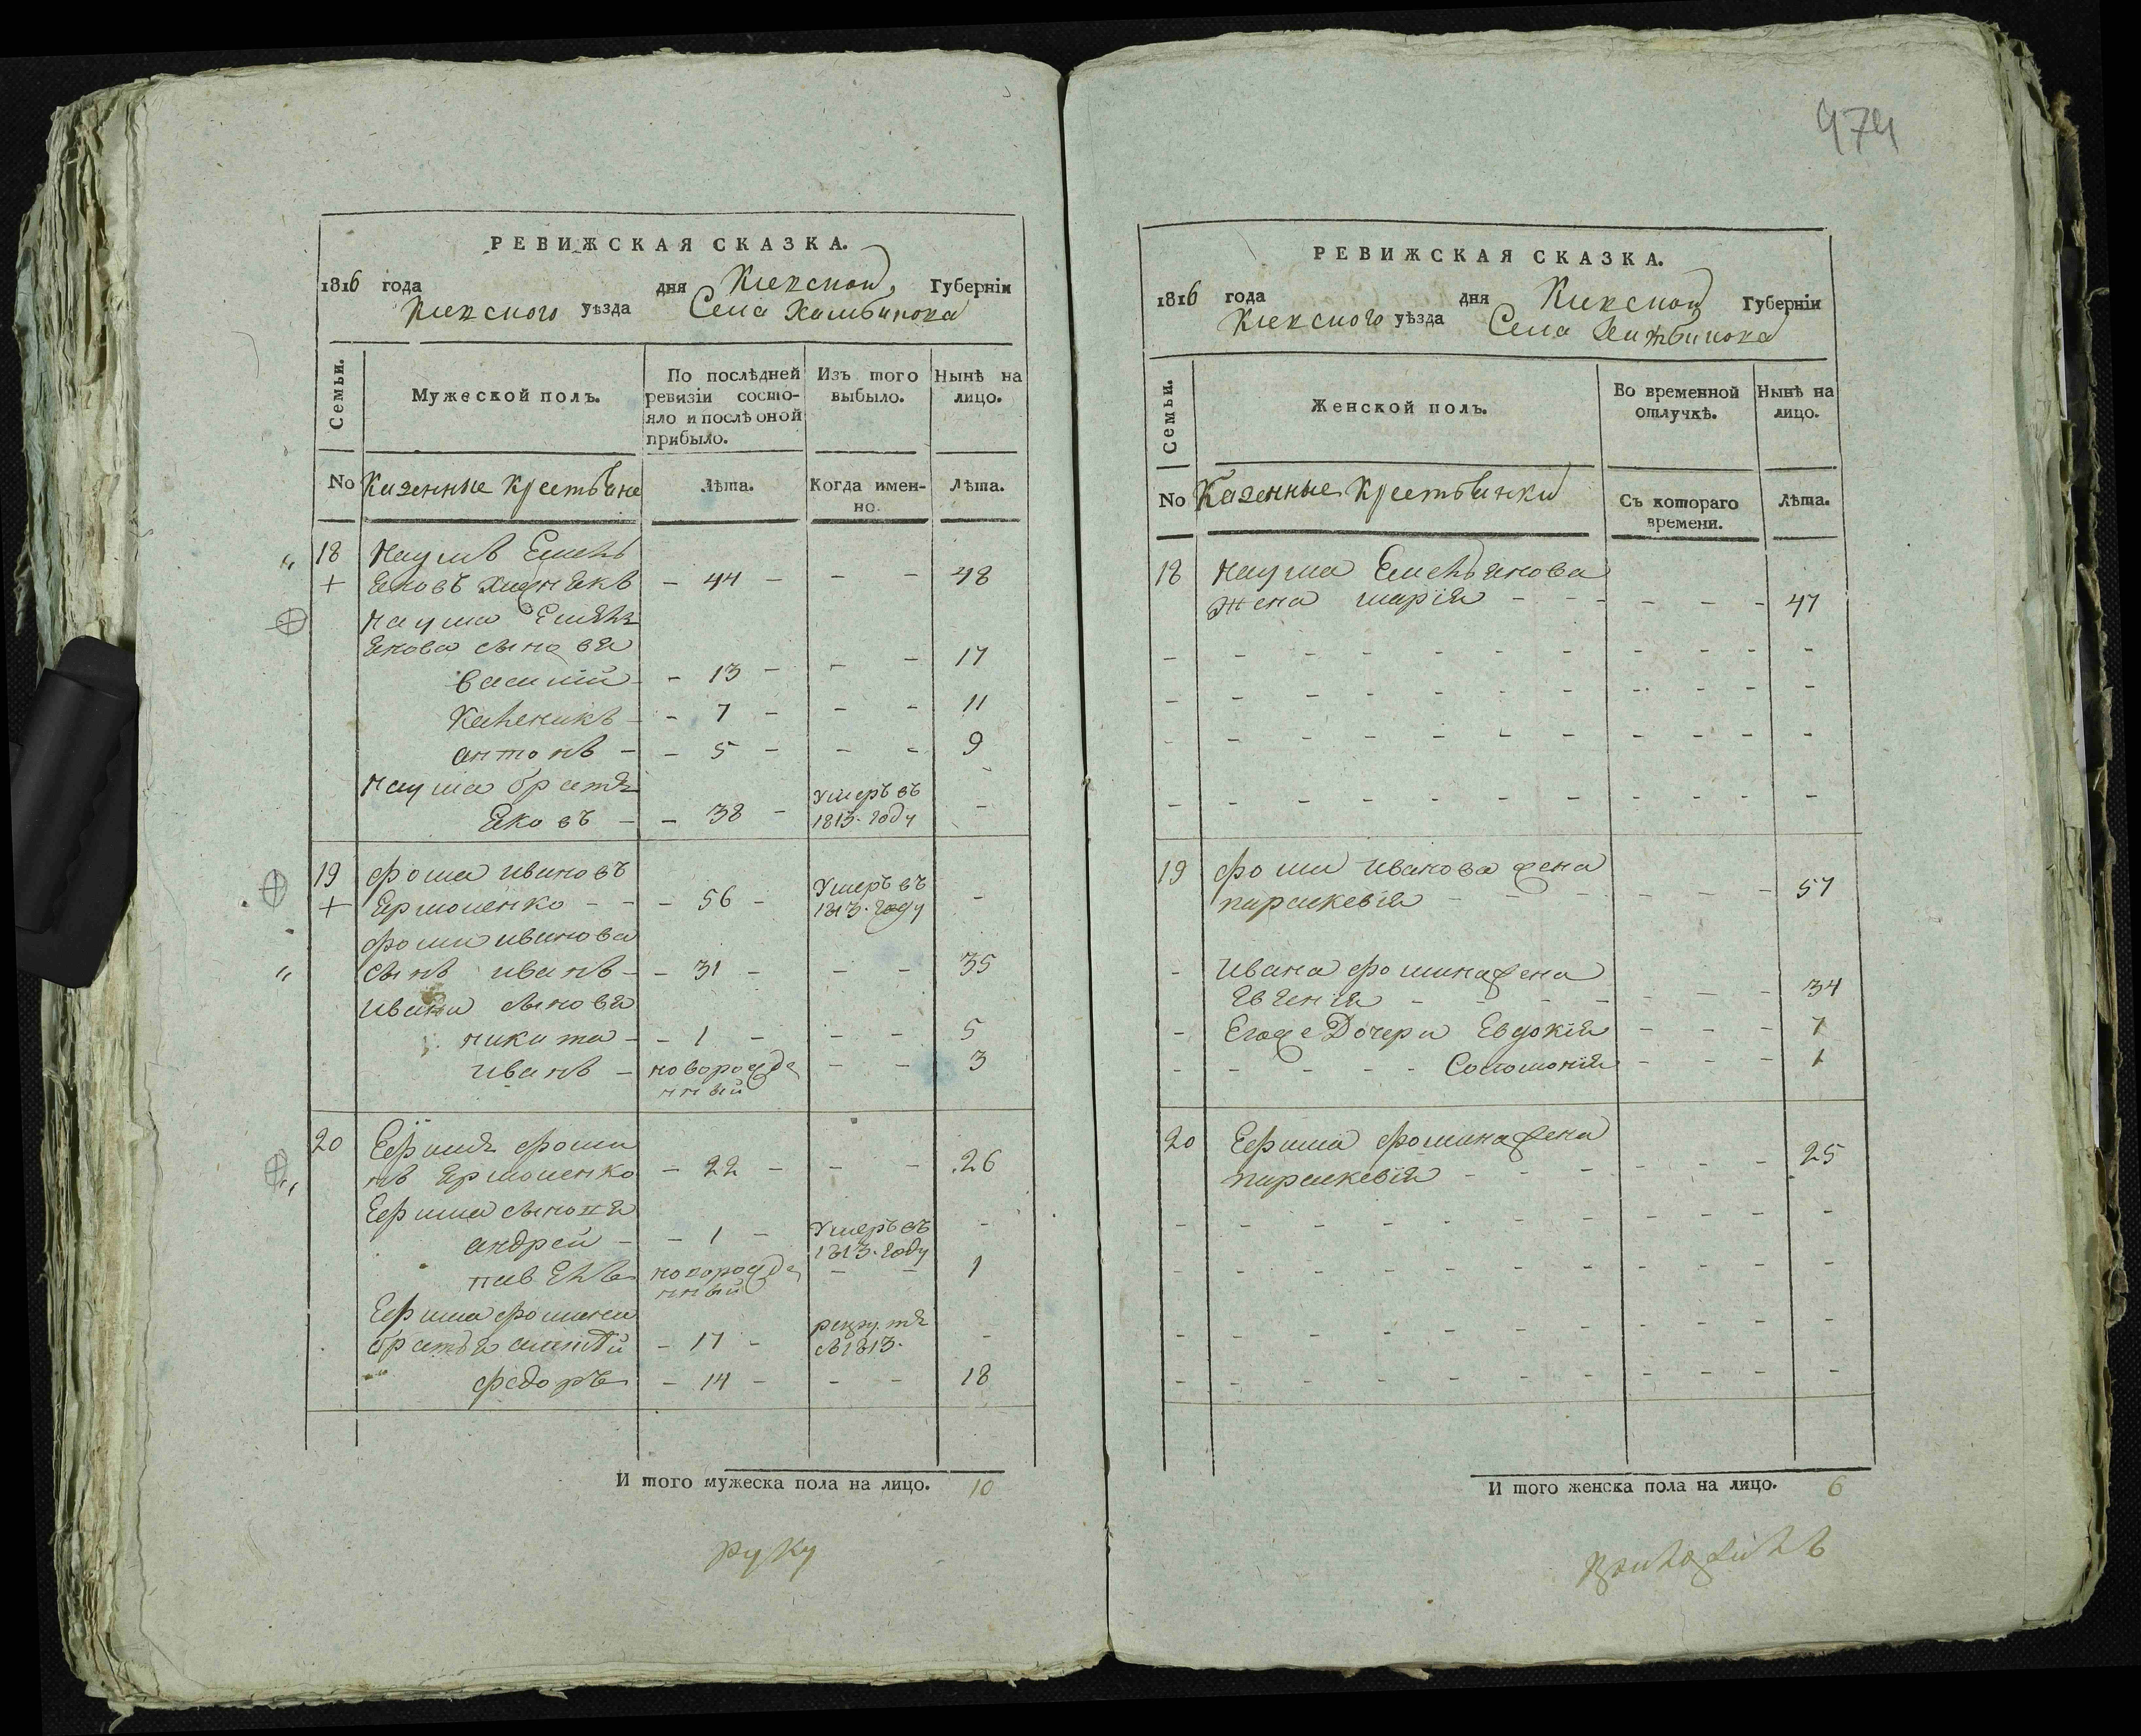 РЕВИЖСКАЯ СКАЗКА.
1816 года дня Киевской Губерніи
Киевского уѣзда Села
Семьи.
Мужеской полъ.
По послѣдней ревизіи состояло и послѣ оной прибыло.
Изъ того выбыло.
Нынѣ на лицо.
No Казенные Крестьяне
Лѣта.
Когда именно.
Лѣта.
18 Наумъ Емель
яновъ - 44 - - - 48
+
Наума Емель
янова сыновья
василий - 13 - - - 17
Каленикъ - - 7 - - - 11
антонъ - - 5 - - - 9
Наума братъ
Яковъ - - 38 - Умеръ въ 1813. году -
19 фома ивановъ
+ Ярмоленко - - - 56 - Умеръ въ 1813. году -
фомы иванова
сынъ иванъ - - 31 - - - 35
ивана сыновья
никита - - 1 - - - 5
иванъ - новорожденный - - 3
20 Ефимъ фоми
нъ Ярмоленко - 22 - - - 26
Ефима сыновья
андрей - - 1 - Умеръ въ 1813. году -
павелъ новорожденный - - 1
Ефима фомина
братья - 17 - рекрутъ 1813. -
федоръ - 14 - - - 18
И того мужеска пола на лицо. 10
руку
974
РЕВИЖСКАЯ СКАЗКА.
1816 года дня Киевской Губерніи
Киевского уѣзда Села
Семьи.
Женской полъ.
Во временной отлучкѣ.
Нынѣ на лицо.
No Казенные Крестьянки
Съ котораго времени.
Лѣта.
18 Наума Емельянова
жена марія - - - - - - 47
19 фомы иванова жена
параскевія - - - - - 57
- Ивана фомина жена
Явгенія - - - - - - - 34
- Его же Дочери Евдокія - - - 7
- - - - - - Соломонія - - - 1
20 Ефима фомина жена
параскевія - - - - - - 25
И того женска пола на лицо. 6
приложилъ